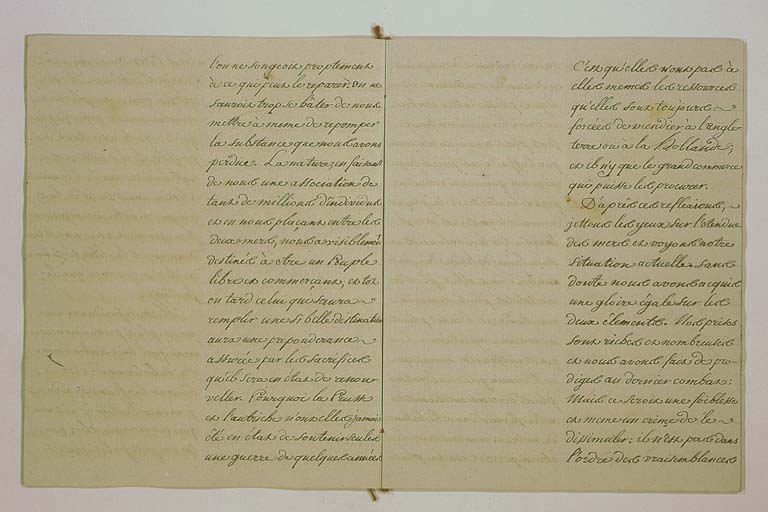 l'on ne songeoit proptement
à ce qui peut le reparer. on ne
sauroit trop se hâter de nous
mettre à même de repomper
la substance que nous avons
perdue. La nature, en faisant
de nous une association de
tant de millions d'individus
et en nous plaçant entre les
deux mers, nous a visiblement
destinés à être un Peuple
libre et commerçant, et tot
ou tard celui qui saura ~
remplir une si belle destination
aura une preponderance ~
assurée par les sacrifices
qu'il sera en état de renou-
veller. Pourquoi la Prusse
et l'autriche n'ont elles jamais
été en état de soutenir seules
une guerre de quelques années
C'est qu'elles n'ont pas à
elles memes les ressources
qu'elles sont toujours ~
forcées de mendier à l'engle-
terre ou à la Hollande,
et il n'y que le grand commerce
qui puisse les procurer.
D'après ces reflexions, ~
jettons les yeux sur l'etendue
des mers et voyons notre
situation actuelle. Sans
doute nous avons acquis
une gloire égale sur les
deux élements. Nos prises
sont riches et nombreuses
et nous avons fait de pro-
diges au dernier combat:
Mais ce seroit une foiblesse
et meme un crime de le ~
dissimuler: il n'est pas dans
l'ordre des vraisemblances